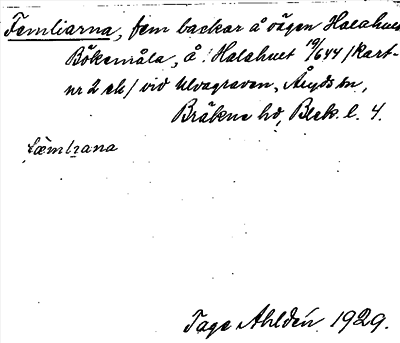 Femliarna, fem backar å vägen Halahult
Bökemåla, å: Halahult 19/644 (kart-
nr 2 ek) vid Ulvagraven, Åryds sn,
Bräkne hd, Blek. l. 4.
fæmlıana
Tage Ahldén. 1929.